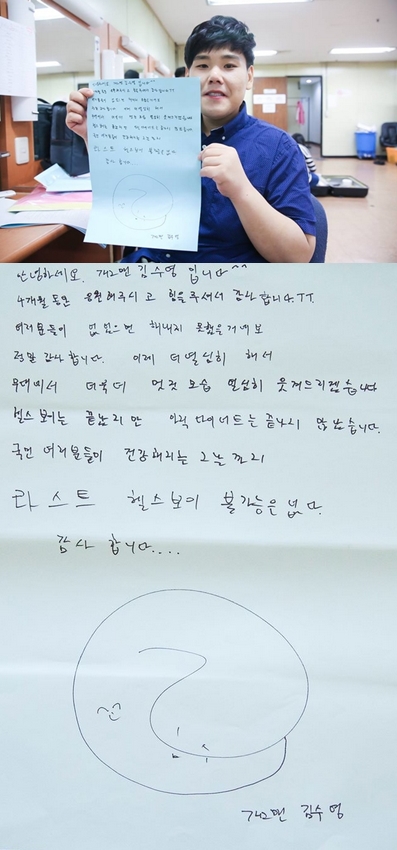 안녕하세요. 개그맨 김수영 입니다^^
4개월 동안 응원해주시고 힘을 주셔서 감사합니다ㅠㅠ.
여러분들이 없었으면 해내지 못했을거예요
정말 감사합니다. 이제 더 열심히 해서
무대에서 더욱더 멋진 모습 열심히 웃겨드리겠습니다
헬스보이는 끝났지만 아직 다이어트는 끝나지 않았습니다.
국민 여러분들이 건강해지는 그날까지
라스트 헬스보이 불가능은 없다.
감사 합니다....
개그맨 김수영